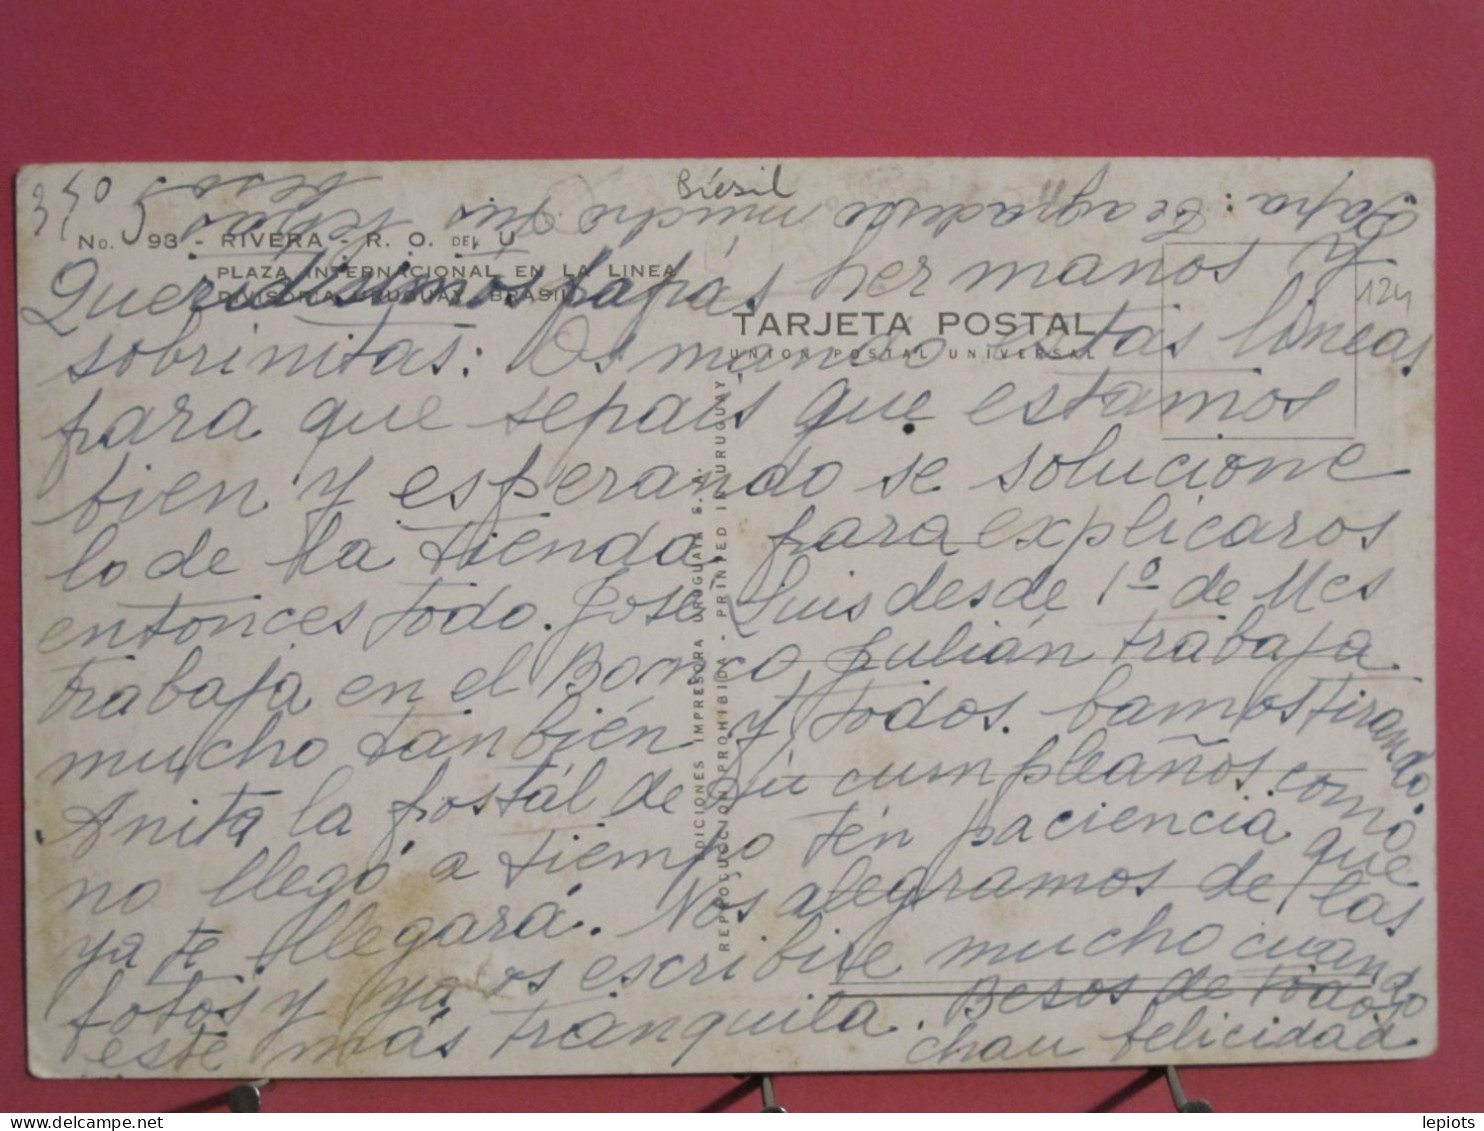 Biesil
3,50
Papa: te agradesco mucho tus
besos
No. 93 - RIVERA - R. O. DEL U
PLAZA INTERNACIONAL EN LA LINEA
DIVISORIA URUGUAY BRASIL
124
TARJETA POSTAL
UNION POSTAL UNIVERSAL
Queridisimos papás hermanos y
sobrinitas: Os mando estas lineas
para que sepais que estamos
bien y esperando se solucione
lo de la tienda para explicaros
entonces todo. Jose Luis desde 1º de Mes
trabaja en el Banco Julián trabaja
mucho tanbién y todos. bamos tirando
Anita la postál de tu cumpleaños como
no llegó a tiempo ten paciencia que
ya te llegará. Nos alegramos de las
fotos y ya os escribire mucho cuando
este más tranquila. Besos de todos
chau felicidad
EDICIONES IMPRESORA URUGUAYA S. A.
REPRODUCCION PROHIBIDA - PRINTED IN URUGUAY
lepiots